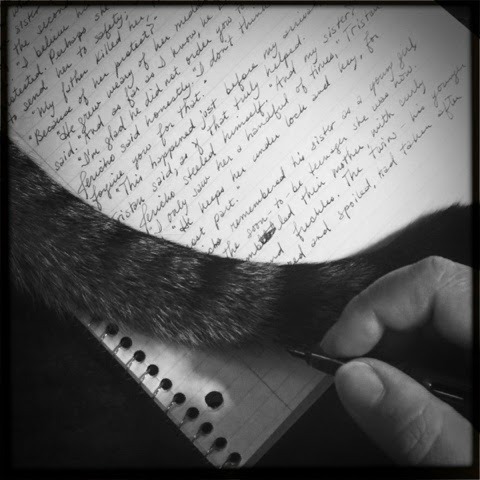 sister
the second
"I believe he
Perhaps she
to send her to safety."
"My father killed her."
"Because of her protest?"
"He grew weary of her
said. "And as far as I know, he
glad he did not order you to
Jericho said honestly. "I don't think
forgive you for that."
"This happened just before my
said, as if that truly helped.
Jericho steeled himself. "And my sister
"I only saw her a handful of times," Tristan
"He keeps her under lock and key, for
part."
remembered his sister as a young girl,
the soon-to-be teenager she was now.
their mother, with curly
and freckles. The Twin, his younger
and spoiled, had taken after